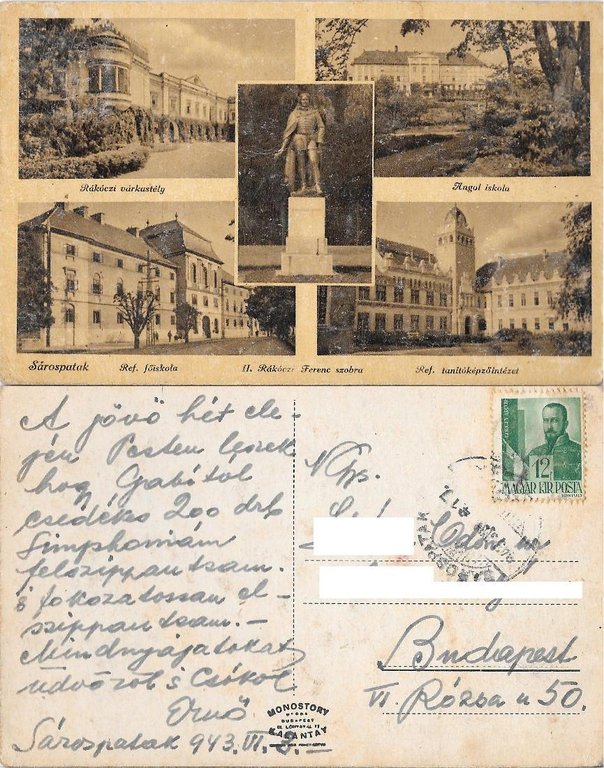 Rákóczi várkastély
Angol iskola
Sárospatak
Ref. főiskola
II. Rákóczi Ferenc szobra
Ref. tanítóképzőintézet
A jövő hét ele-
jén Pesten leszek
hog Gabitol
esedékes 200 drb
Simphomám
felszippantsam.
s fokozatosan el-
szippantsam. —
Mindnyájatokat
üdvözöl s csókol
Ernő
Sárospatak 943. VI. 3. —
MONOSTORY
BUDAPEST
KARANTAY
12
MAGYAR KIR. POSTA
SÁROSPATAK
Ngs.
Ödön
Budapest
VI. Rózsa u 50.